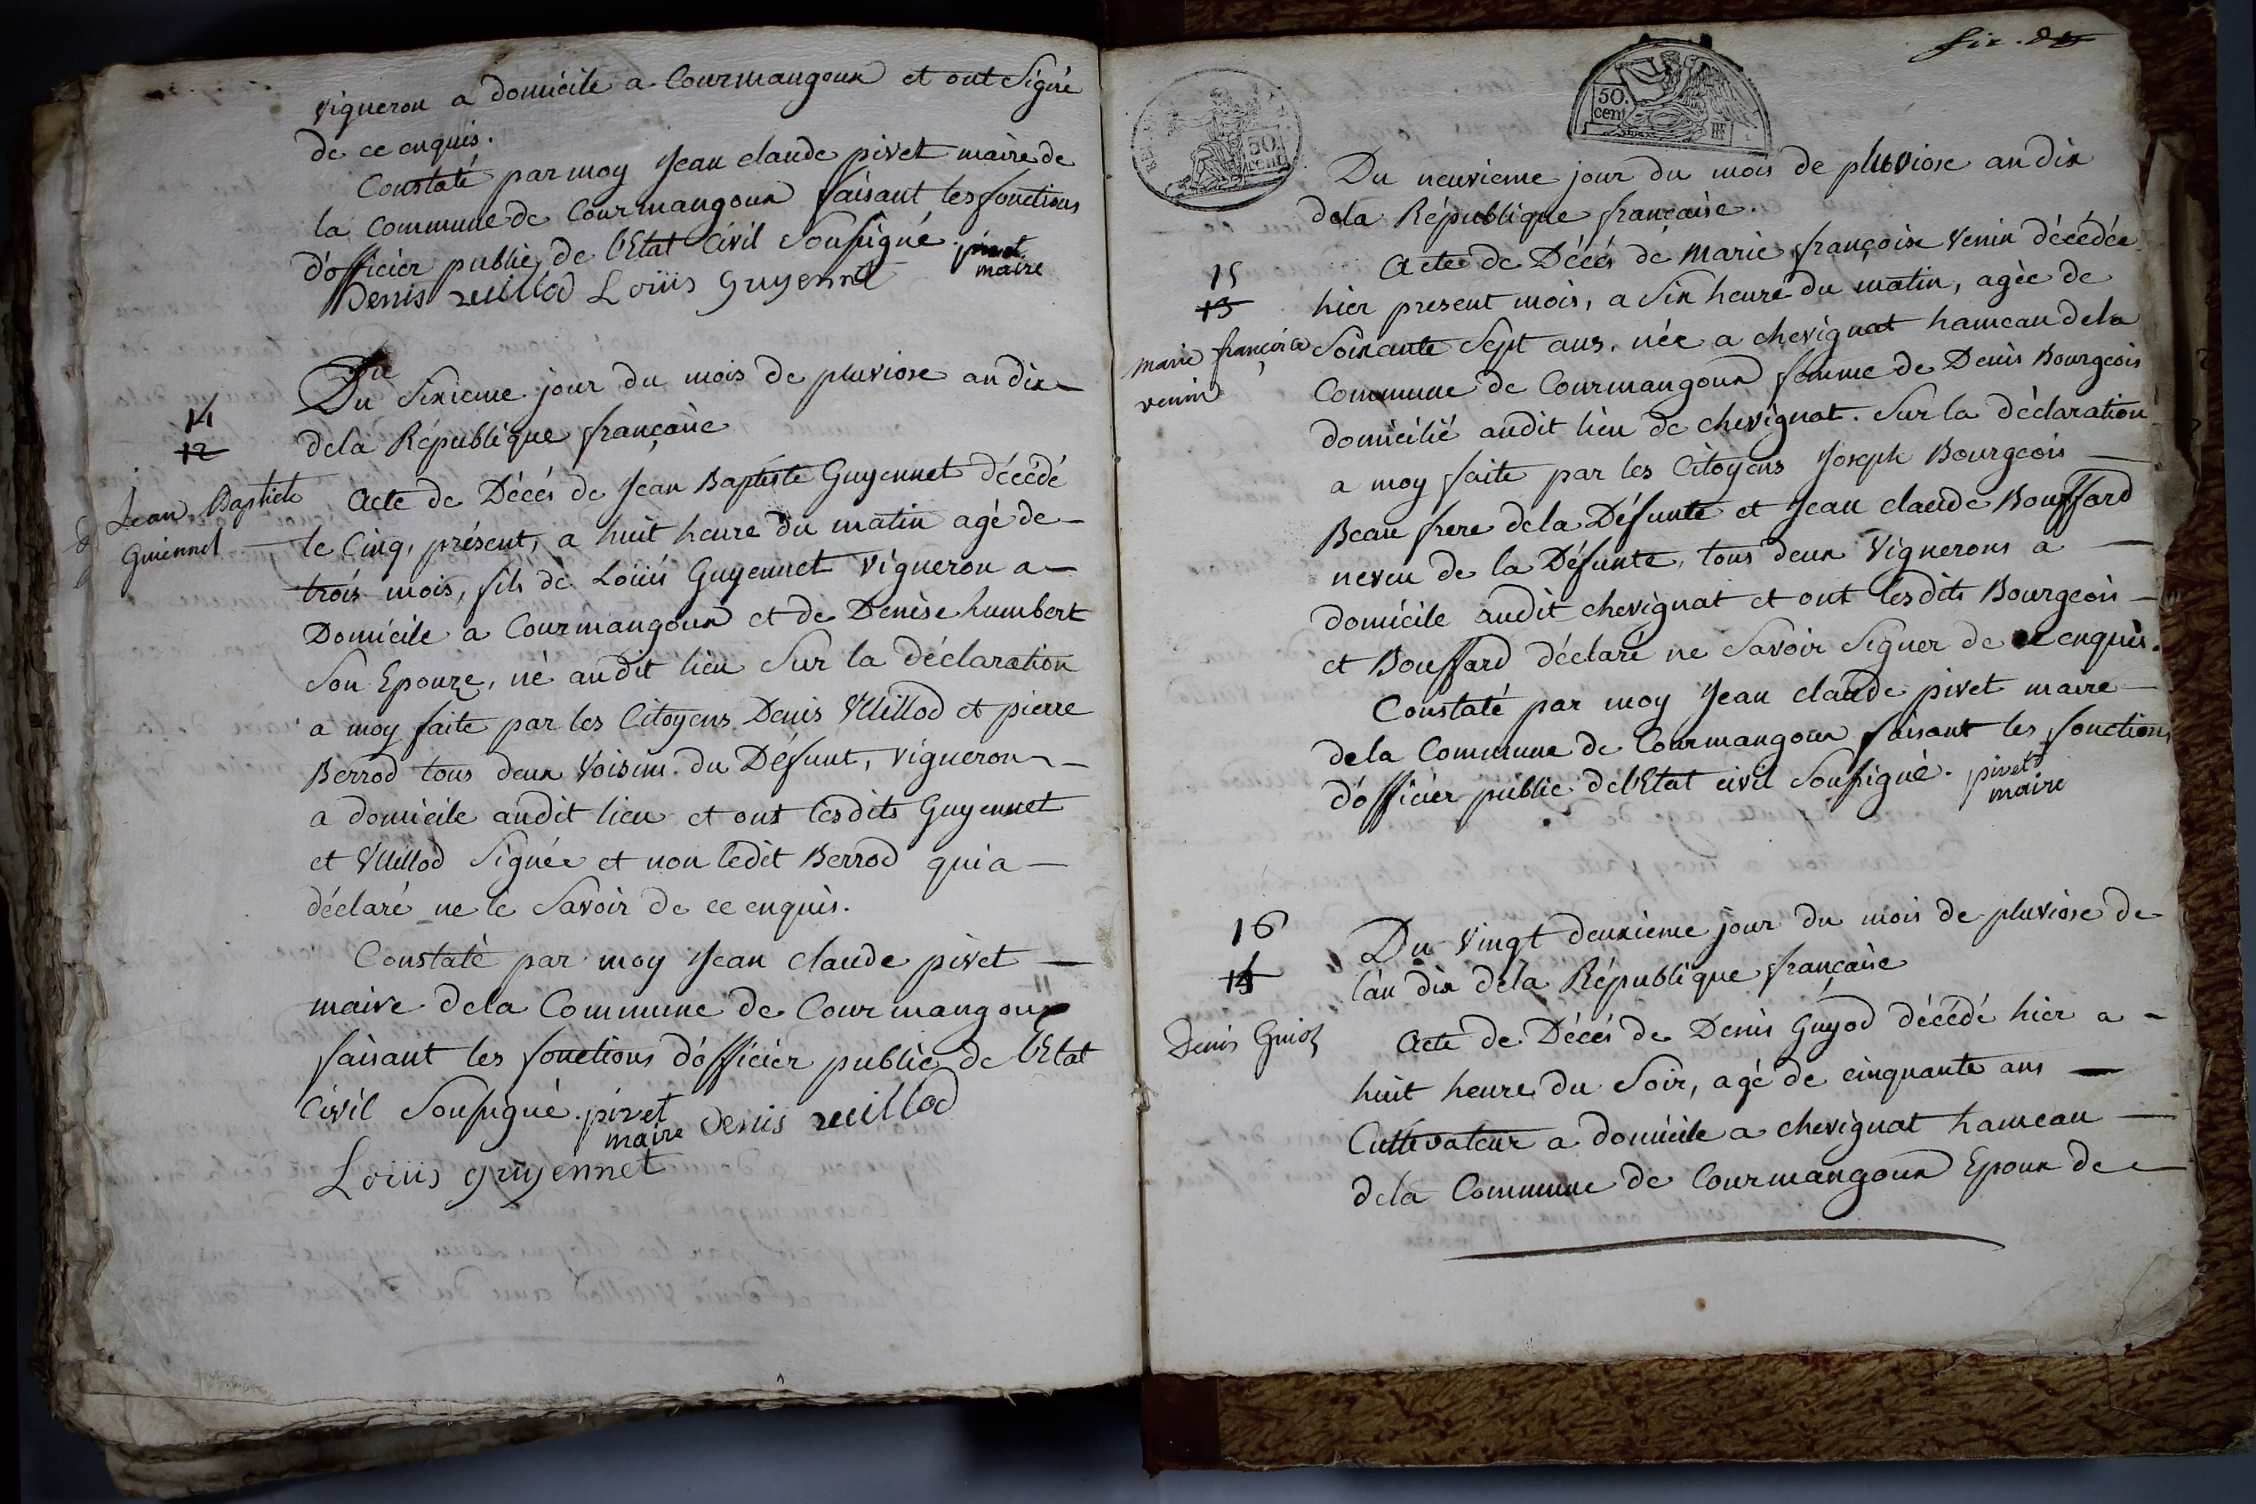 vigneron a domicile a Courmangoux et ont Signé
de ce enquis.
Constaté par moy Jean claude pivet maire de
la Commune de Courmangoux faisant les fonctions
d'officier public de l'Etat Civil Soussigné. pivet
maire
Denis vuillod Loüis Guyennet
Du Sixieme jour du mois de pluviose an dix
dela République française
14
12
Jean Baptiste
Guiennet
Acte de Décés de Jean Baptiste Guyennet décédé
le Cinq, présent, a huit heure du matin agé de
trois mois, fils de Loüis Guyennet Vigneron a
Domicile a Courmangoux et de Denise humbert
Son Epouze, né audit lieu Sur la déclaration
a moy faite par les Citoyens Denis Vuillod et pierre
Berrod tous deux Voisins du Défunt, vigneron
a domicile audit lieu et ont lesdits Guyennet
et Vuillod Signée et non ledit Berrod qui a
déclaré ne le Savoir de ce enquis.
Constaté par moy Jean claude pivet
maire dela Commune de Courmangoux
faisant les fonctions d'officier public de l'Etat
Civil Soussigné. pivet
maire Denis vuillod
Loüis gruyennet
50.
cent
RF
50
cent
Du neuvieme jour du mois de pluviose an dix
dela République française.
15
13
marie françoise
venin
Acte de Décés de Marie françoise Venin décédée
hier present mois, a Six heure du matin, agée de
Soixante Sept ans, née a chevignat hameau dela
Commune de Courmangoux femme de Denis Bourgeois
domicilié audit lieu de chevignat. Sur la déclaration
a moy faite par les Citoyens Joseph Bourgeois
Beau frere dela Défunte et Jean claude Bouffard
neveu de la Défunte, tous deux Vignerons a
domicile audit chevignat et ont lesdits Bourgeois
et Bouffard déclaré ne Savoir Signer de ce enquis.
Constaté par moy Jean claude pivet maire
dela Commune de Courmangoux faisant les fonctions
d'officier public de l'Etat civil Soussigné. pivet
maire
16
14
Denis Guiod
Du Vingt deuxième jour du mois de pluviose de
l'an dix dela République française
Acte de Décés de Denis Guyod décédé hier a
huit heure du Soir, agé de cinquante ans
Cultivateur a domicile a chevignat hameau
dela Commune de Courmangoux Epoux de